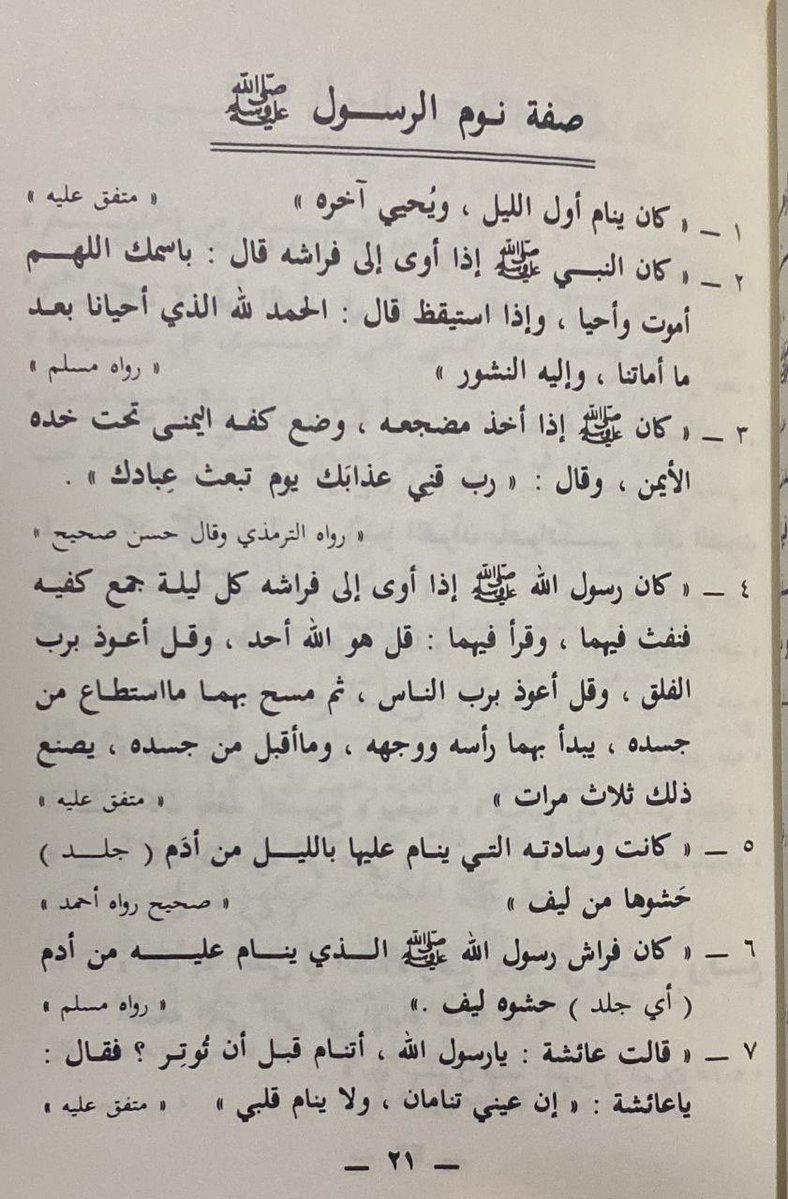 صفة نوم الرسول ﷺ
١ ـ « كان ينام أول الليل ، ويُحيي آخره » « متفق عليه »
٢ ـ « كان النبي ﷺ إذا أوى إلى فراشه قال : باسمك اللهم
أموت وأحيا ، وإذا استيقظ قال : الحمد لله الذي أحيانا بعد
ما أماتنا ، وإليه النشور » « رواه مسلم »
٣ ـ « كان ﷺ إذا أخذ مضجعه ، وضع كفه اليمنى تحت خده
الأيمن ، وقال : « رب قنِي عذابَك يوم تبعث عِبادك » .
« رواه الترمذي وقال حسن صحيح »
٤ ـ « كان رسول الله ﷺ إذا أوى إلى فراشه كل ليلة جمع كفيه
فنفث فيهما ، وقرأ فيهما : قل هو الله أحد ، وقل أعوذ برب
الفلق ، وقل أعوذ برب الناس ، ثم مسح بهما مااستطاع من
جسده ، يبدأ بهما رأسه ووجهه ، وماأقبل من جسده ، يصنع
ذلك ثلاث مرات » « متفق عليه »
٥ ـ « كانت وسادته التي ينام عليها بالليل من أدَم ( جلد )
حَشوها من ليف » « صحيح رواه أحمد »
٦ ـ « كان فراش رسول الله ﷺ الذي ينام عليه من أدم
( أي جلد ) حشوه ليف .» « رواه مسلم »
٧ ـ « قالت عائشة : يارسول الله ، أتنام قبل أن تُوتِر ؟ فقال :
ياعائشة : « إن عيني تنامان ، ولا ينام قلبي » « متفق عليه »
ـ ٢١ ـ